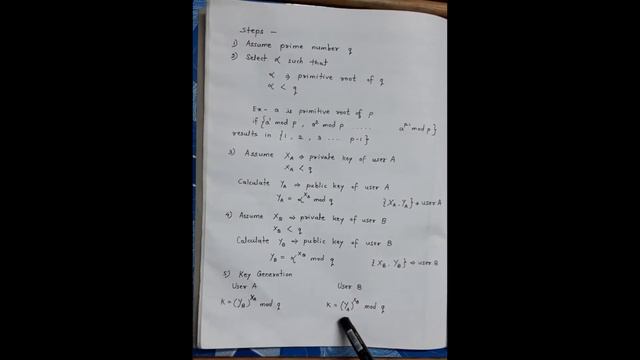 Steps -
1) Assume prime number q
2) Select α such that
α → primitive root of q
α < q
Ex - a is primitive root of p
if {a¹ mod p , a² mod p ..... a^(p-1) mod p}
results in {1, 2, 3 .... p-1}
3) Assume X_A → private key of user A
X_A < q
Calculate Y_A → public key of user A
Y_A = α^(X_A) mod q {X_A, Y_A} → user A
4) Assume X_B → private key of user B
X_B < q
Calculate Y_B → public key of user B
Y_B = α^(X_B) mod q {X_B, Y_B} → user B
5) Key Generation
User A User B
K = (Y_B)^(X_A) mod q K = (Y_A)^(X_B) mod q